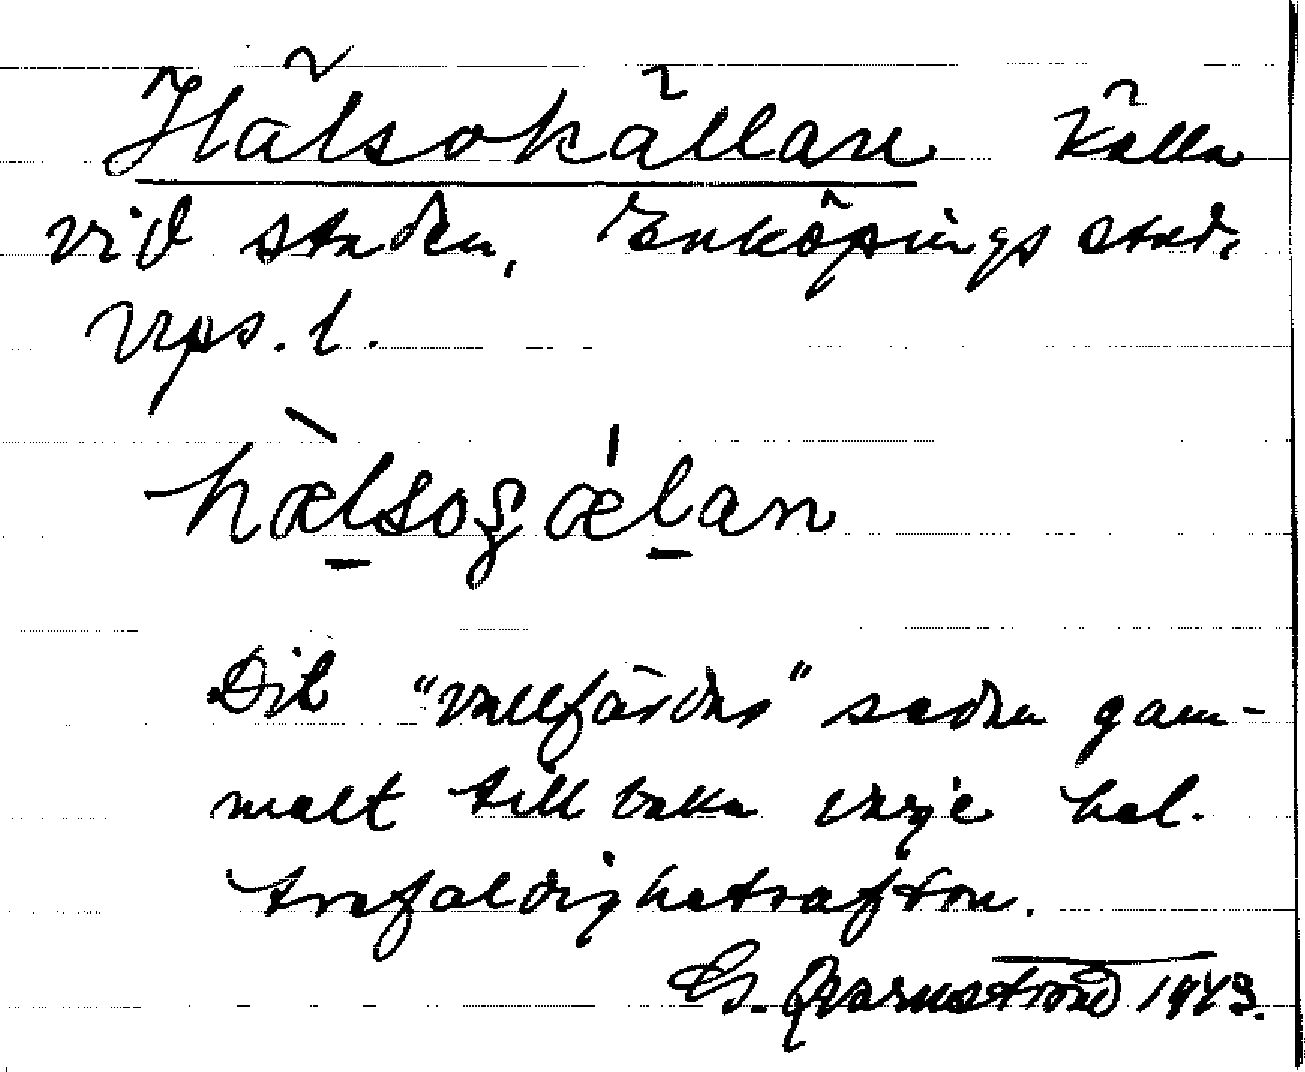 Hälsokällan Källa
vid staden, Enköpings stad,
Upps. l.
hæ̀lsogǽlan
Dit "vallfärdas" sedan gam-
malt tillbaka varje hel.
trefaldighetsafton.
G. Qvarnström 1943.